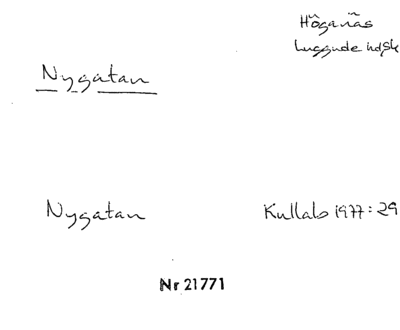 Höganäs
Luggude hd Sk
Nygatan
Nygatan Kullab 1977:29
Nr 21771